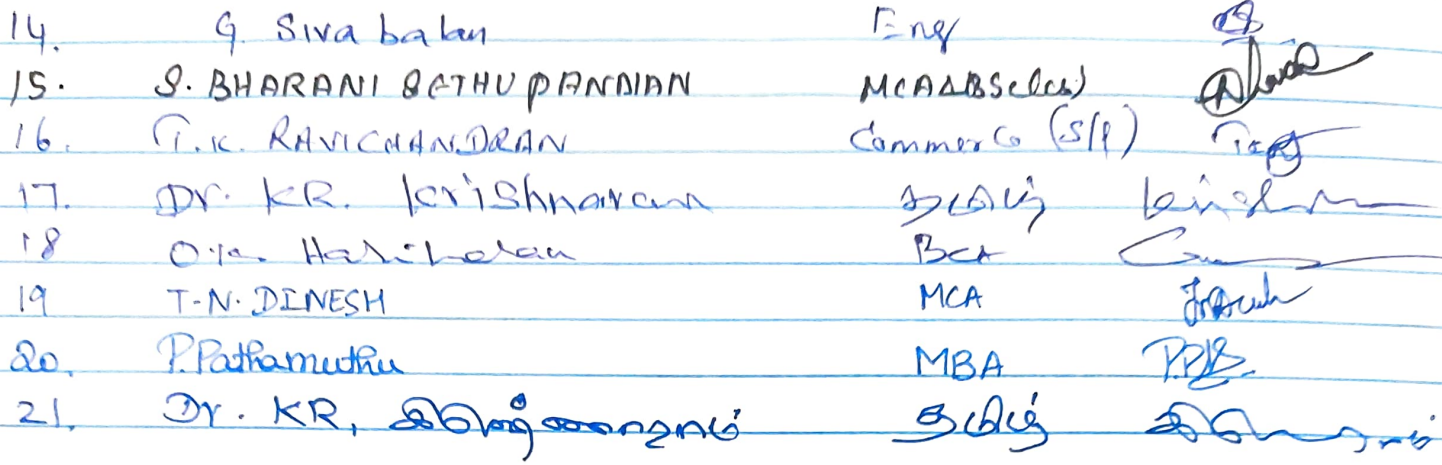 14. G. Sivabalan Eng
15. S. BHARANI SETHU PANDIAN MCA
16. T.K. RAVICHANDRAN Commerce (S/F)
17. Dr. KR. Krishnaram தமிழ்
18 Hariharan BCA
19 T.N. DINESH MCA
20. P. Pathamuthu MBA
21. Dr. KR, தமிழ்